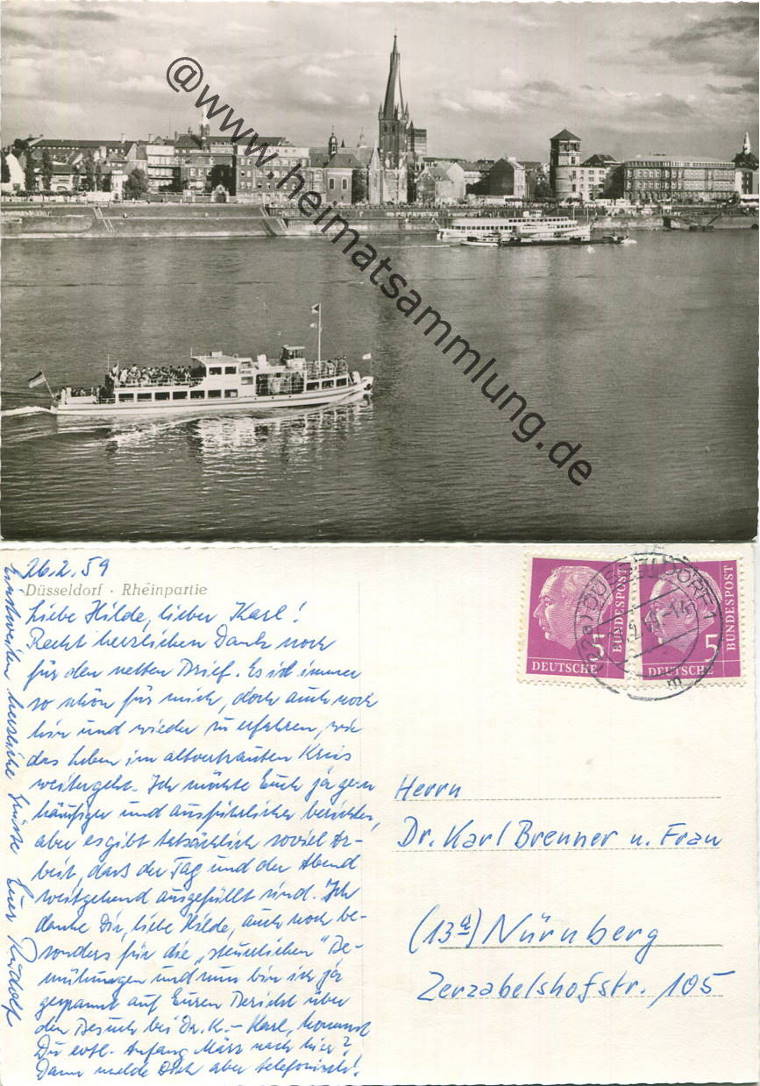 @www.heimatsammlung.de
26.2.59
Düsseldorf · Rheinpartie
Liebe Hilde, lieber Karl!
Recht herzlichen Dank noch
für den netten Brief. Es ist immer
so schön für mich, doch auch noch
hin und wieder zu erfahren, wie
das Leben im altvertrauten Kreis
weitergeht. Ich möchte Euch ja gern
häufiger und ausführlicher berichten,
aber es gibt tatsächlich soviel Ar-
beit, dass der Tag und der Abend
weitgehend ausgefüllt sind. Ich
danke Dir, liebe Hilde, auch noch be-
sonders für die „steuerlichen" Be-
mühungen und nun bin ich ja
gespannt auf Euren Bericht über
den Besuch bei Dr. K. – Karl, kommst
Du evtl. Anfang März nach hier?
Dann melde Dich aber telefonisch!
Einstweilen herzliche Grüsse Euer Rudolf
DÜSSELDORF 1
5
DEUTSCHE
BUNDESPOST
5
DEUTSCHE
BUNDESPOST
Herrn
Dr. Karl Brenner u. Frau
(13a) Nürnberg
Zerzabelshofstr. 105